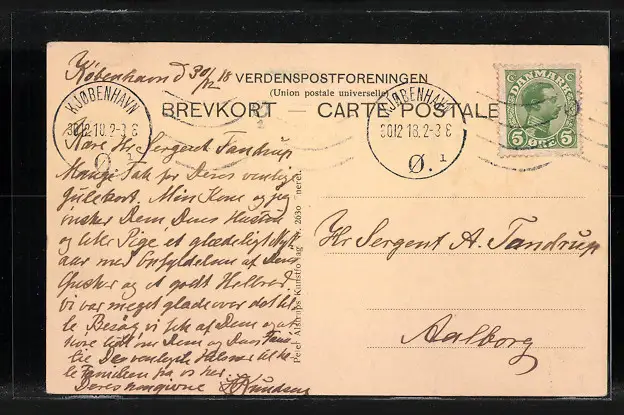 København d 30/12 18
VERDENSPOSTFORENINGEN
(Union postale universelle)
BREVKORT — CARTE POSTALE
KJØBENHAVN
30.12.18.2-3 E
Ø. 1
KJØBENHAVN
30.12.18.2-3 E
Ø. 1
DANMARK
5 ØRE 5
Kære Hr. Sergent Tandrup
Mange Tak for Deres venlige
Julekort. Min Kone og jeg
ønsker Dem Deres Hustru
og lille Pige et glædeligt Nyt-
aar med Opfyldelsen af Deres
Ønsker og et godt Helbred.
Vi var meget glade over det lil-
le Besøg vi fik af Dem og at
høre lidt om Dem og Deres Fami-
lie De venligste Hilsner til he-
le Familien fra os her.
Deres hengivne Knudsen
Peter Alstrups Kunstforlag Nr. 2630 Eneret.
Hr Sergent A. Tandrup
Aalborg